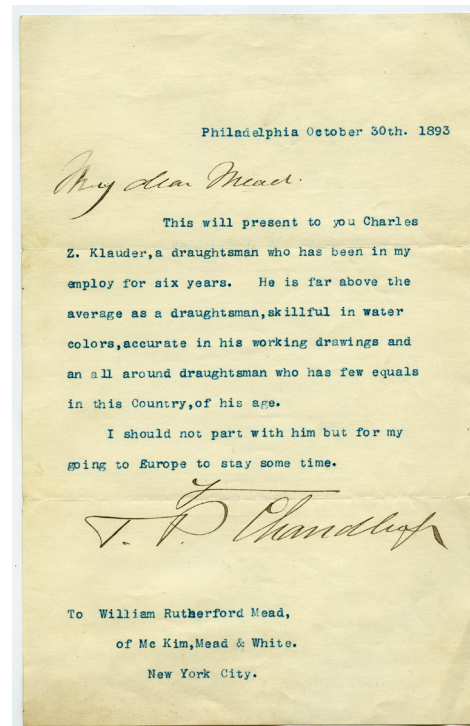 Philadelphia October 30th. 1893
My dear Mead.
This will present to you Charles
Z. Klauder,a draughtsman who has been in my
employ for six years. He is far above the
average as a draughtsman,skillful in water
colors,accurate in his working drawings and
an all around draughtsman who has few equals
in this Country,of his age.
I should not part with him but for my
going to Europe to stay some time.
T. P. Chandler
To William Rutherford Mead,
of Mc Kim,Mead & White.
New York City.